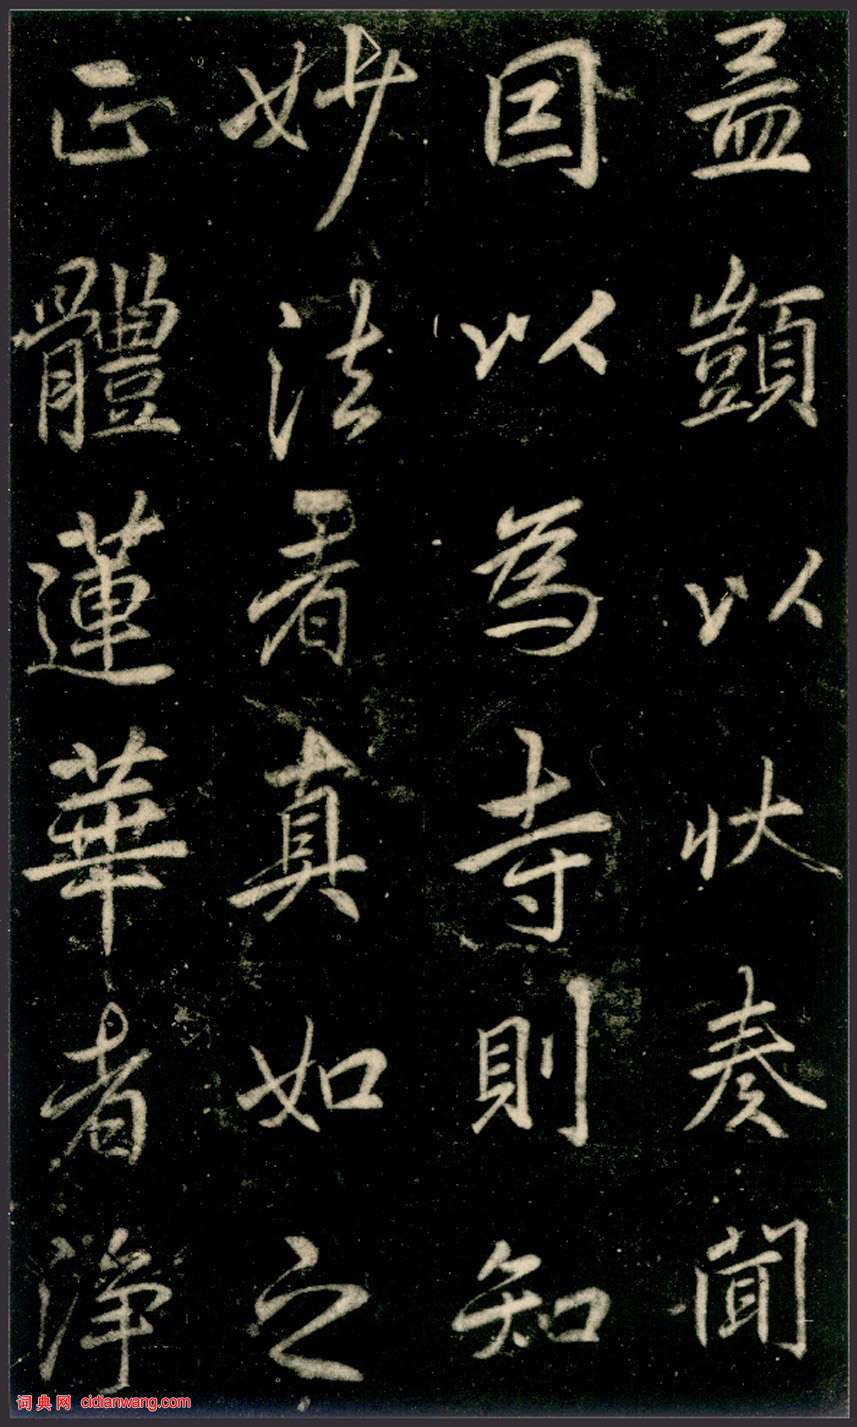 盖顗以状奏闻
因以為寺則知
妙法者真如之
正體蓮華者淨
词典网 cidianwang.com